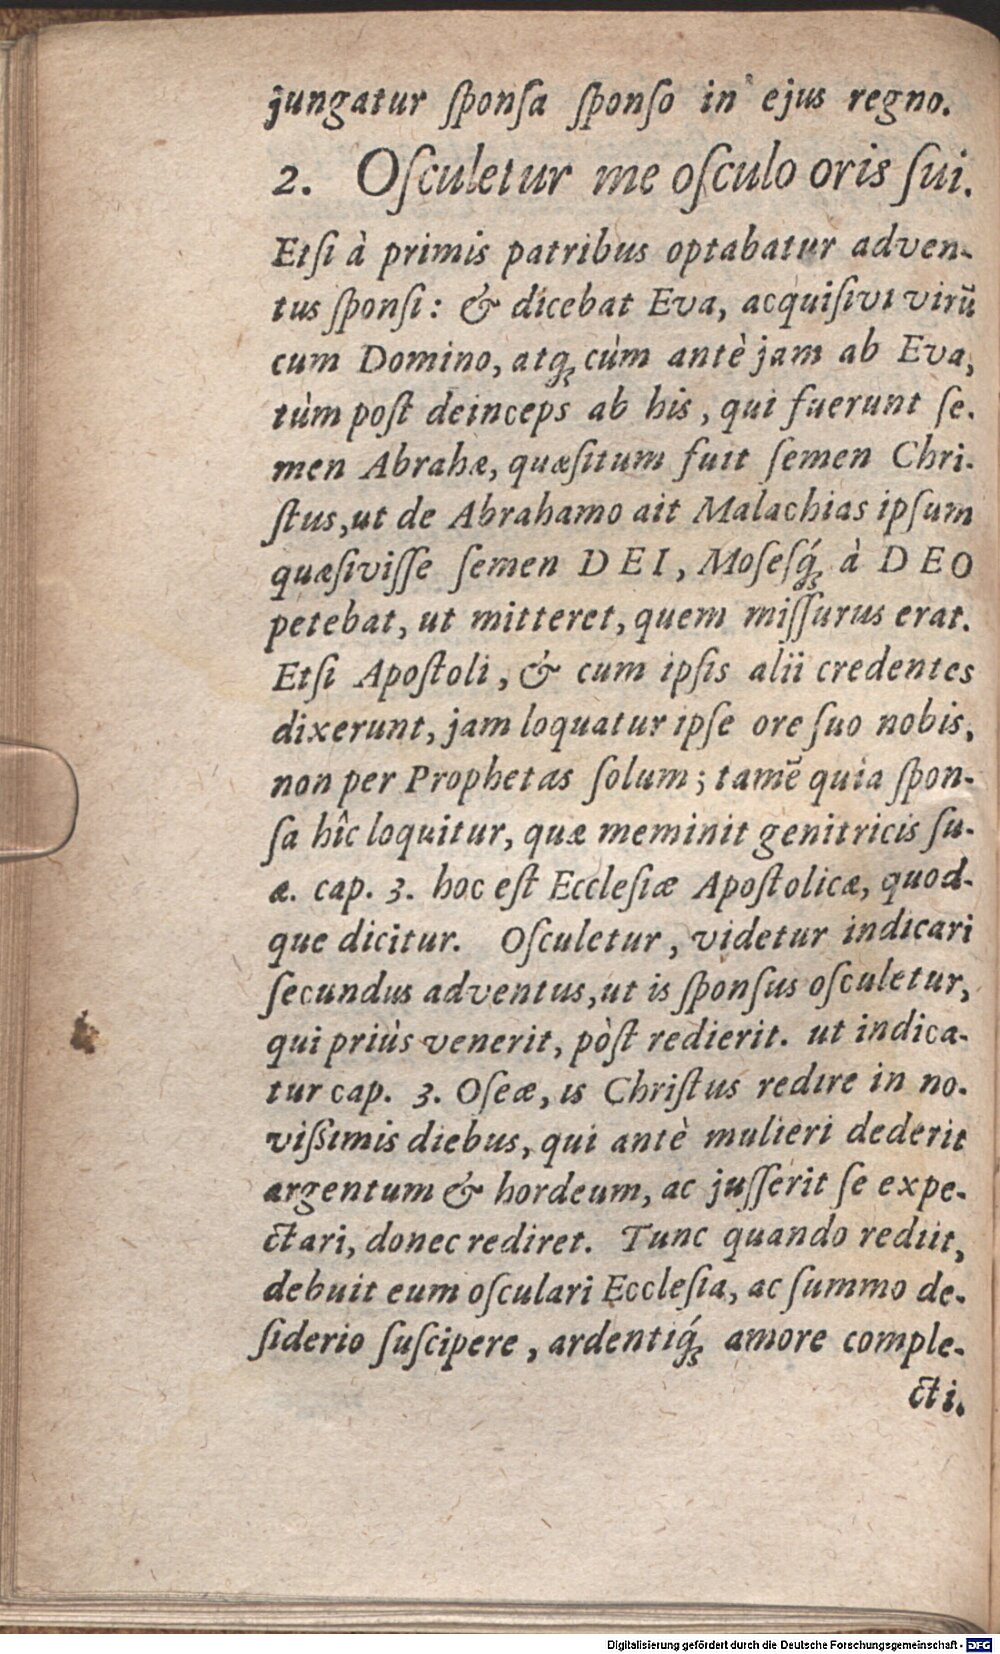 jungatur ſponſa ſponſo in ejus regno.
2. Oſculetur me oſculo oris ſui.
Etſi à primis patribus optabatur adven-
tus ſponſi: & dicebat Eva, acquiſivi virū
cum Domino, atq; cùm antè jam ab Eva,
tùm poſt deinceps ab his, qui fuerunt ſe-
men Abrahæ, quæſitum fuit ſemen Chri-
ſtus, ut de Abrahamo ait Malachias ipſum
quæſiviſſe ſemen DEI, Moſesq́; à DEO
petebat, ut mitteret, quem miſſurus erat.
Etſi Apoſtoli, & cum ipſis alii credentes
dixerunt, jam loquatur ipſe ore ſuo nobis,
non per Prophetas ſolum; tamē quia ſpon-
ſa hîc loquitur, quæ meminit genitricis ſu-
æ. cap. 3. hoc eſt Eccleſiæ Apoſtolicæ, quod-
que dicitur. Oſculetur, videtur indicari
ſecundus adventus, ut is ſponſus oſculetur,
qui priùs venerit, pòſt redierit. ut indica-
tur cap. 3. Oſeæ, is Chriſtus redire in no-
viſsimis diebus, qui antè mulieri dederit
argentum & hordeum, ac juſſerit ſe expe-
ctari, donec rediret. Tunc quando rediit,
debuit eum oſculari Eccleſia, ac ſummo de-
ſiderio ſuſcipere, ardentiq́; amore comple-
cti.
Digitalisierung gefördert durch die Deutsche Forschungsgemeinschaft - DFG